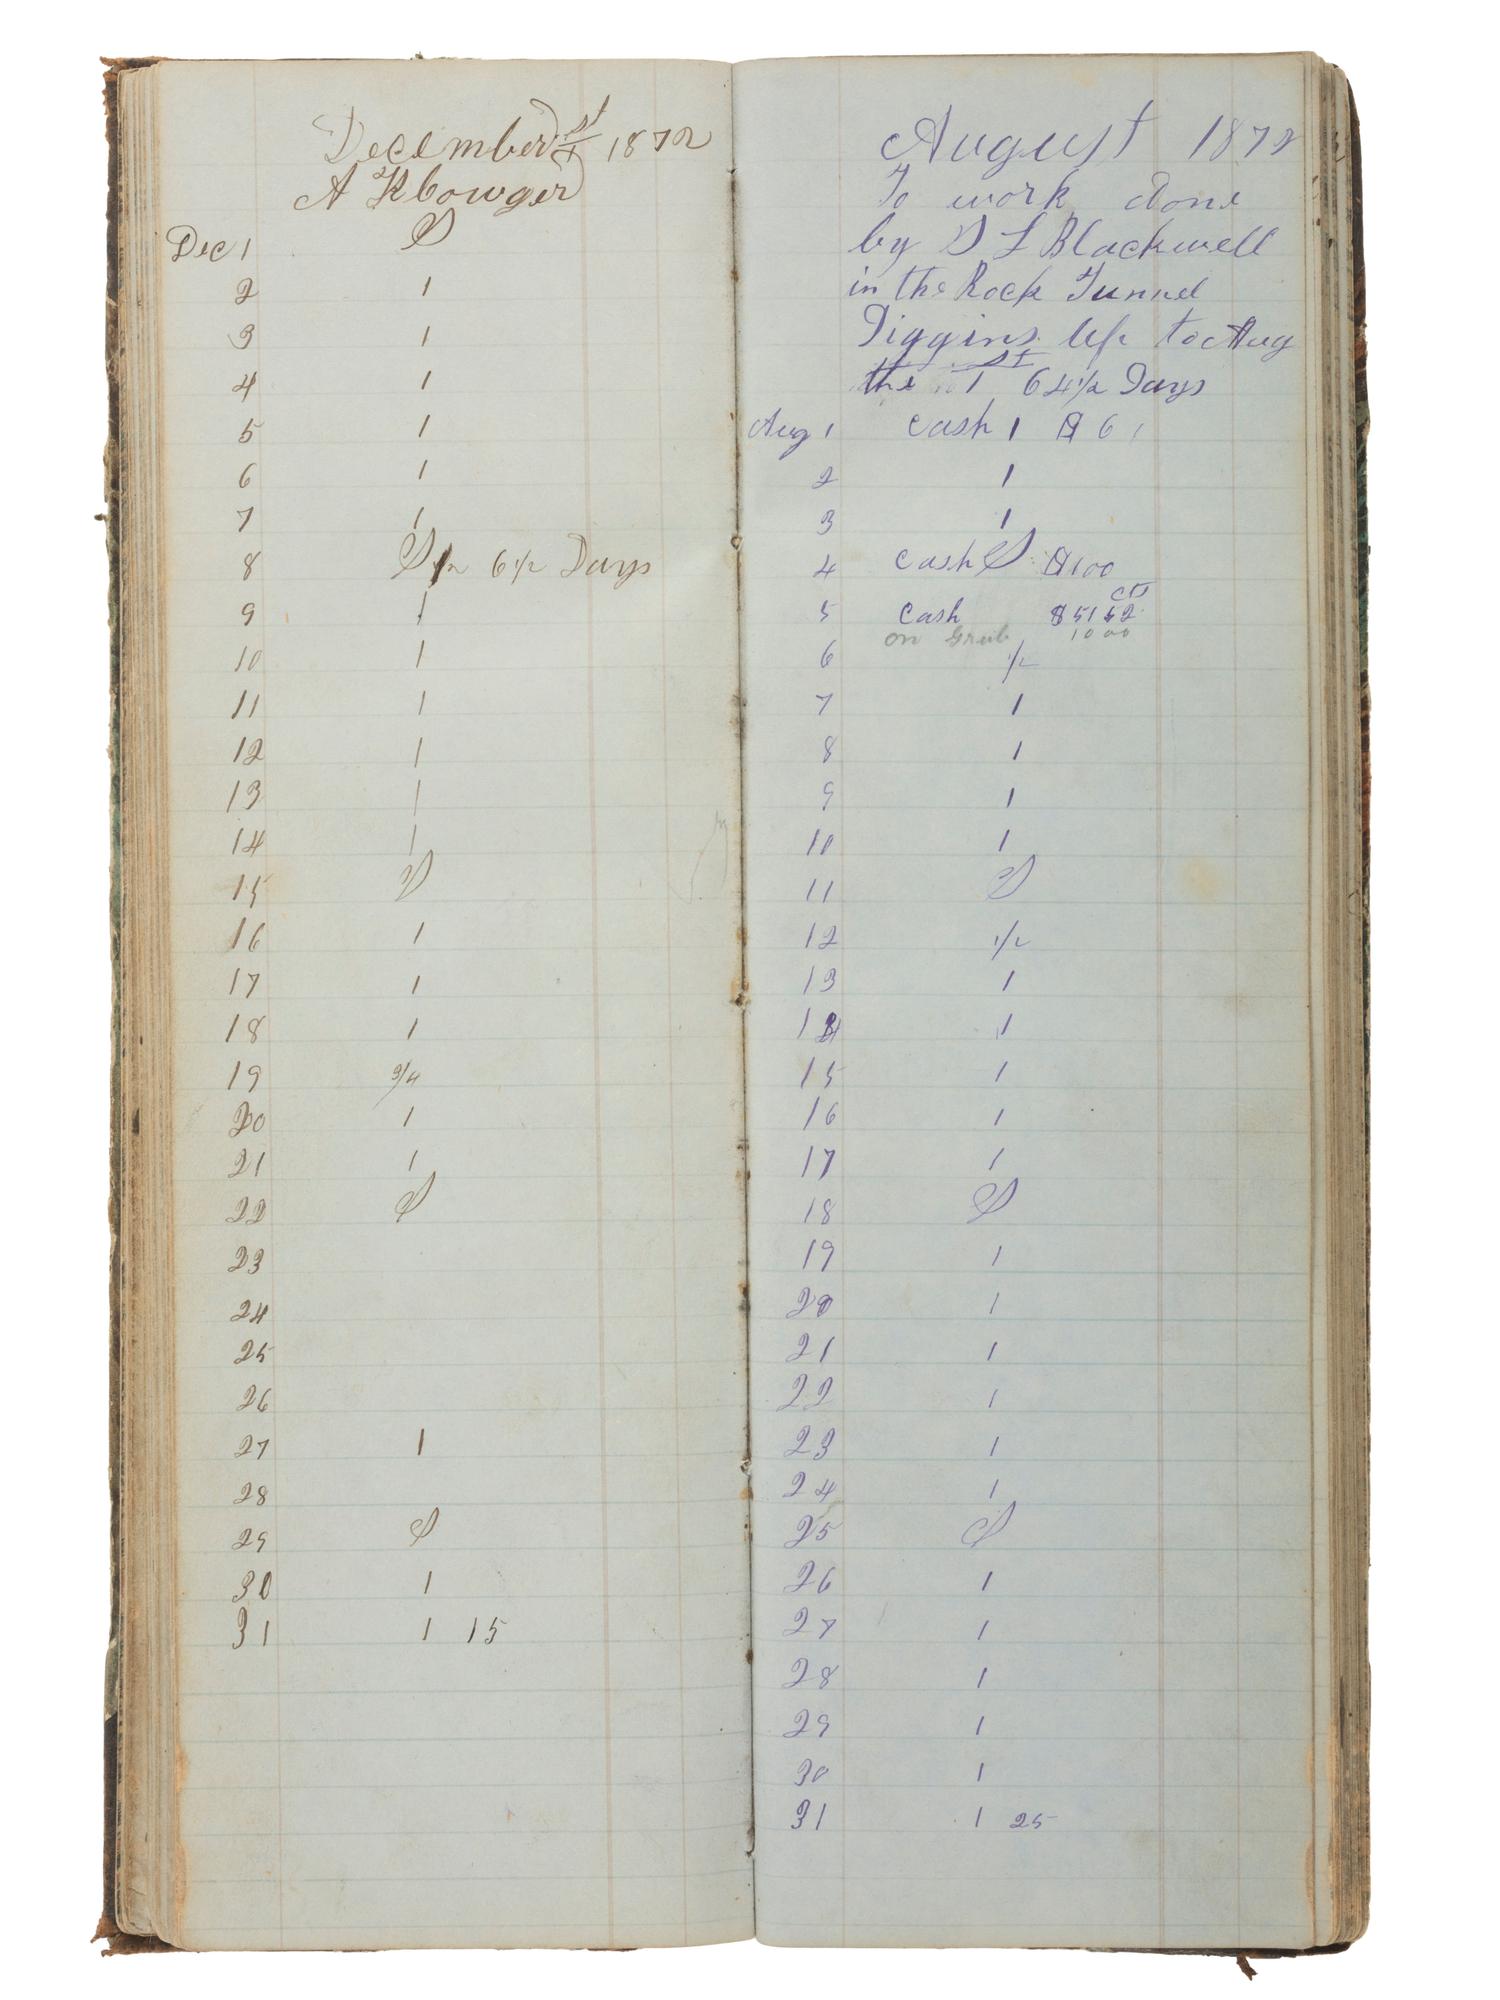 December 1st 1872
A Klbowger
Dec 1 S
2 1
3 1
4 1
5 1
6 1
7 1
8 S 1/2 6 1/2 Days
9 1
10 1
11 1
12 1
13 1
14 1
15 S
16 1
17 1
18 1
19 3/4
20 1
21 1
22 S
23
24
25
26
27 1
28
29 S
30 1
31 1 15
August 1872
To work done
by S L Blackwell
in the Rock Tunnel
Diggins Up to Aug
the 1st 64 1/2 Days
Aug 1 cash 1 $ 61
2 1
3 1
4 cash S $100
5 Cash $51 52 cts
on Grub 10 00
6 1/2
7 1
8 1
9 1
10 1
11 S
12 1/2
13 1
14 1
15 1
16 1
17 1
18 S
19 1
20 1
21 1
22 1
23 1
24 1
25 S
26 1
27 1
28 1
29 1
30 1
31 1 25